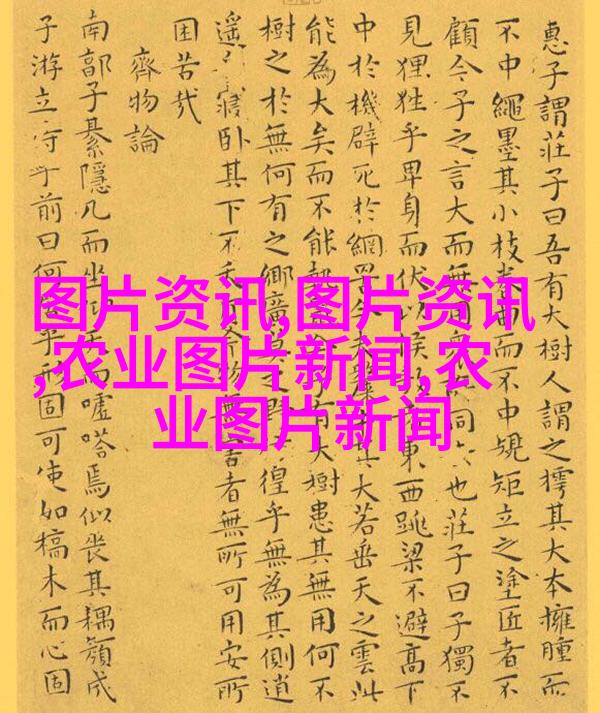 惠子謂莊子曰吾有大樹人謂之樗其大本擁腫而
不中繩墨其小枝卷曲而不中規矩立之塗匠者不
顧今子之言大而無用同也莊子曰子獨不
見狸狌乎卑身而伏以候東西跳梁不避高下
中於機辟死於網罟今夫其大若垂天之雲此
能為大矣而不能執有大樹患其無用何不
樹之於無何有之鄉廣莫之野徨乎無為其側逍
遙寢卧其下不物無害者無所可用安所
困苦哉
齊物論
南郭子綦隱几而坐而噓嗒焉似喪其耦顏成
子游立侍乎前曰何乎形固可使如槁木而心固
图片资讯,图片资讯
,农业图片新闻,农
业图片新闻